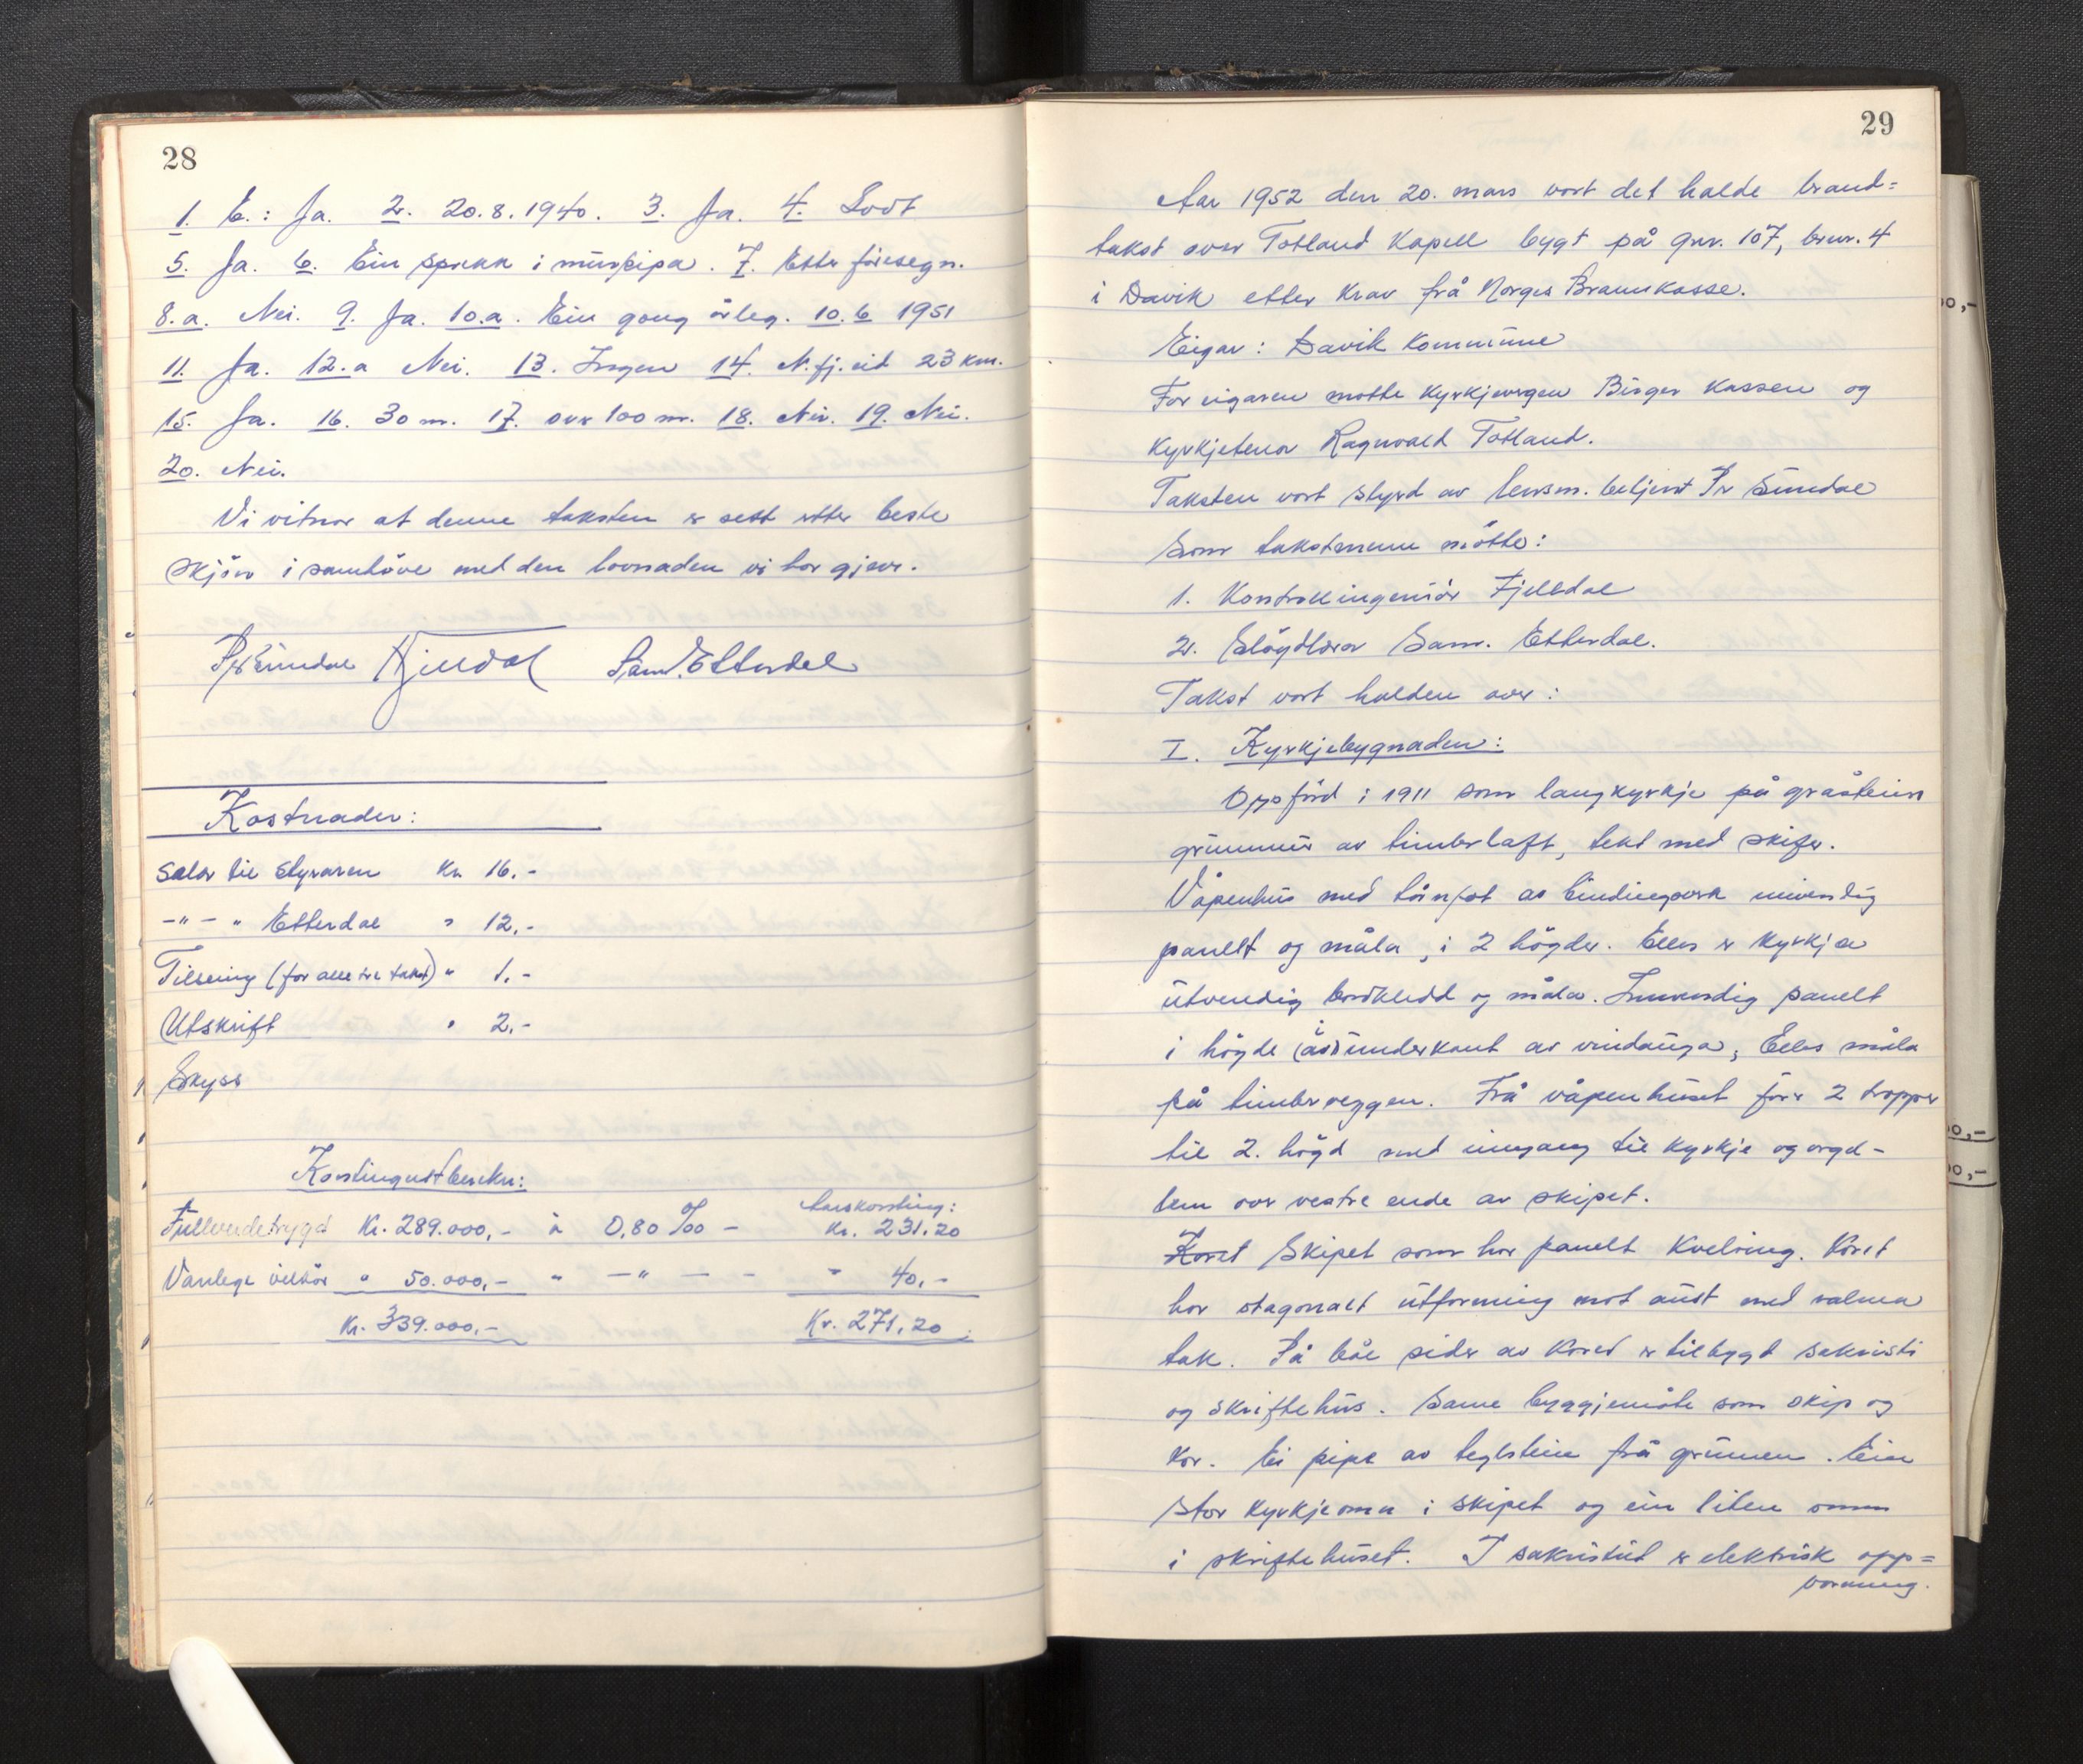 28
1. b.: Ja. 2. 20.8.1940. 3. Ja. 4. Godt
5. Ja. 6. Ein sprekk i murpipa. 7. Etter föresegn.
8.a. Nei. 9. Ja. 10.a. Ein gong årleg. 10.b 1951
11. Ja. 12.a Nei. 13. Ingen 14. N.fj.eid 23 km.
15. Ja. 16. 30 m. 17. over 100 m. 18. Nei. 19. Nei.
20. Nei.
Vi vitnar at denne taksten er sett etter beste
skjön i samhöve med den lovnaden vi har gjeve.
Per Sundal Fjelldal Sam. Etterdal
Kostnader:
Salær til styraren Kr. 16.-
-"- " Etterdal " 12.-
Tilseiing (for alle tre takst) " 1.-
Utskrift " 2.-
Skyss
Kontingentberekn:
Årskonting:
Fullverdetrygd Kr. 289.000,- à 0,80 ‰ - Kr. 231,20
Vanlege vilkår " 50.000,- " -"- - - " 40,-
Kr. 339.000,- Kr. 271,20
29
Aar 1952 den 20. mars vart det halde brand=
takst over Totland Kapell bygt på gnr. 107, bnr. 4
i Davik etter krav frå Norges Brannkasse.
Eigar: Davik Kommune
For eigaren møtte kyrkjevergen Birger Kassen og
kyrkjetenar Ragnvald Totland.
Taksten vart styrd av lensm. betjent Pr Sundal
Som takstmenn mötte:
1. Kontrollingeniör Fjelldal
2. Slöydlærar Sam. Etterdal.
Takst vart halden over:
I. Kyrkjebygnaden:
Oppförd i 1911 som langkyrkje på gråstein
grunnmur av timberlaft, tekt med skifer.
Våpenhus med tårnfot av bindingsverk innvendig
panelt og måla, i 2 högder. Elles er kyrkja
utvendig bordkledd og måla. Innvendig panelt
i högde (av) underkant av vindauga, Elles måla
på timberveggen. Frå våpenhuset förer 2 tropper
til 2. högd med inngang til kyrkje og orgel-
lem over vestre ende av skipet.
Koret Skipet som har panelt kvelving. Koret
har otagonalt utforming mot aust med valma
tak. På båe sider av koret er tilbygd sakristi
og skriftehus. Same byggjemåte som skip og
kor. Ei pipe av teglstein frå grunnen. Ein
stor kyrkjeomn i skipet og ein liten omn
i skriftehuset. I sakristiet er elektrisk opp=
varming.
0,-
0,-
0,-